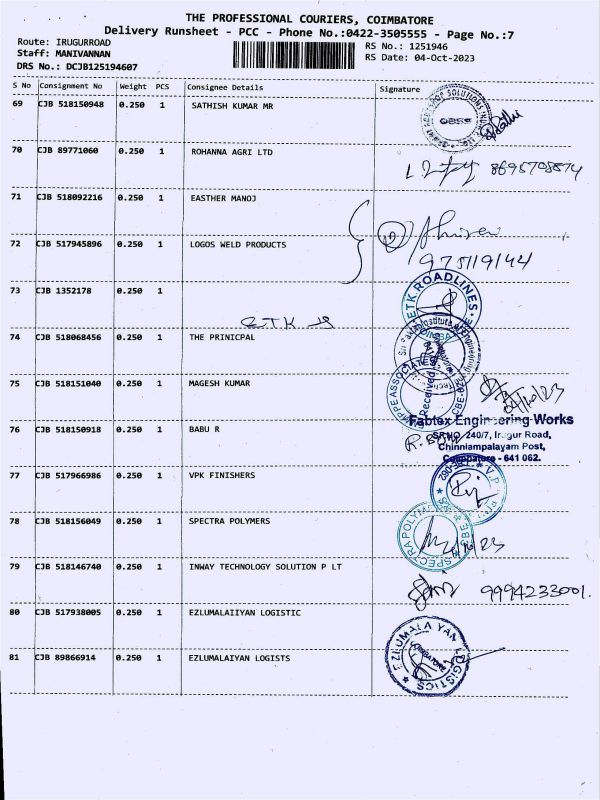 THE PROFESSIONAL COURIERS, COIMBATORE
Delivery Runsheet - PCC - Phone No.:0422-3505555 - Page No.:7
Route: IRUGURROAD
Staff: MANIVANNAN
DRS No.: DCJB125194607
RS No.: 1251946
RS Date: 04-Oct-2023
S No Consignment No Weight PCS Consignee Details Signature
69 CJB 518150948 0.250 1 SATHISH KUMAR MR
OBSS
70 CJB 89771060 0.250 1 ROHANNA AGRI LTD
8695708874
71 CJB 518092216 0.250 1 EASTHER MANOJ
72 CJB 517945896 0.250 1 LOGOS WELD PRODUCTS
73 CJB 1352178 0.250 1
ETK ROADLINES
ETK
74 CJB 518068456 0.250 1 THE PRINICPAL
75 CJB 518151040 0.250 1 MAGESH KUMAR
Received
04/10/23
76 CJB 518150918 0.250 1 BABU R
Fabtex Engineering Works
SF.NO. 240/7, Irugur Road,
Chinniampalayam Post,
Coimbatore - 641 062.
77 CJB 517966986 0.250 1 VPK FINISHERS
78 CJB 518156049 0.250 1 SPECTRA POLYMERS
SPECTRA POLYMERS
79 CJB 518146740 0.250 1 INWAY TECHNOLOGY SOLUTION P LT
9994233001.
80 CJB 517938005 0.250 1 EZLUMALAIIYAN LOGISTIC
81 CJB 89866914 0.250 1 EZLUMALAIYAN LOGISTS
EZLUMALAIYAN LOGISTICS
COIMBATORE